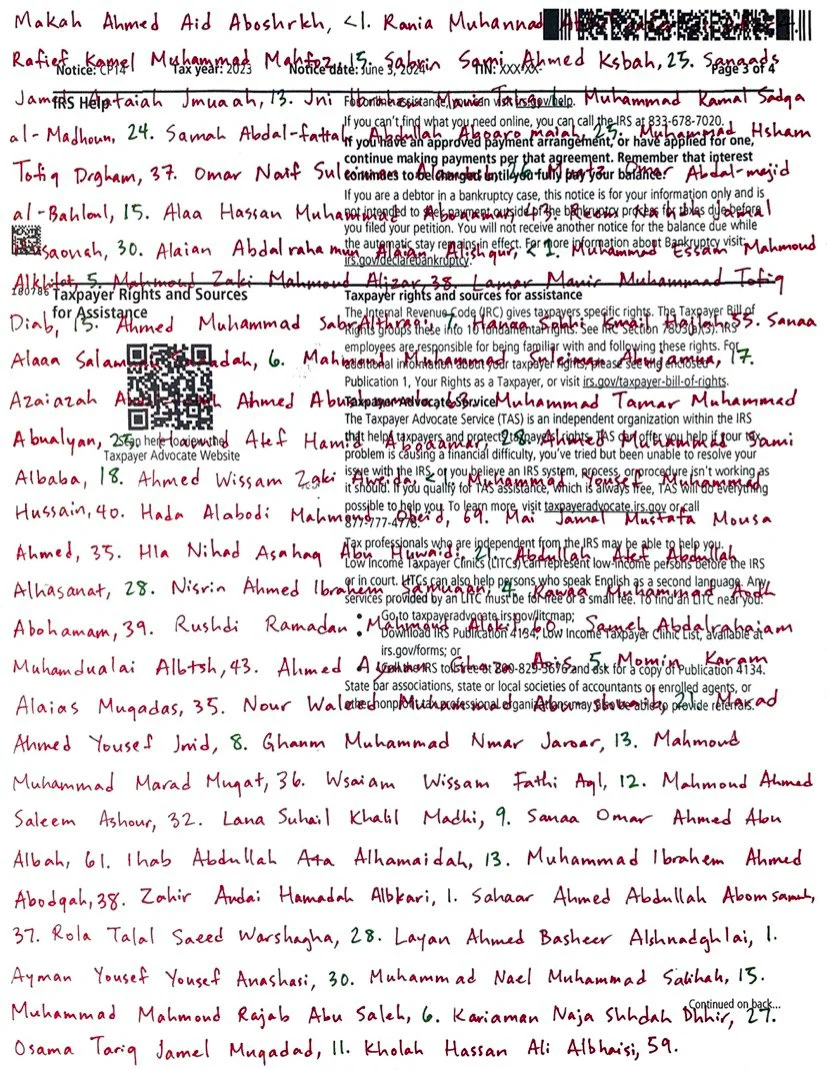 Makah Ahmed Aid Aboshrkh, <1. Rania Muhannad
Rafief Kamel Muhammad Mahfoz, 15. Sabrin Sami Ahmed Ksbah, 25. Sanaads
Notice: CP14 Tax year: 2023 Notice date: June 3, 2024 TIN: XXX-XX- Page 3 of 4
IRS Help
Jmuaah, 13. Muhammad Kamal Sadqa
For online assistance, you can visit irs.gov/help.
If you can't find what you need online, you can call the IRS at 833-678-7020.
al-Madhoun, 24. Samah Abdal-fattah Abdullah Muhammad Hsham
If you have an approved payment arrangement, or have applied for one,
continue making payments per that agreement. Remember that interest
continues to be charged until you fully pay your balance.
Tofiq Drgham, 37. Omar Naif Abdal-majid
If you are a debtor in a bankruptcy case, this notice is for your information only and is
not intended to seek payment outside of the bankruptcy process for taxes due before
you filed your petition. You will not receive another notice for the balance due while
the automatic stay remains in effect. For more information about Bankruptcy visit:
irs.gov/declarebankruptcy.
al-Bahloul, 15. Alaa Hassan Muhammad Jamal
30. Alaian Abdalrahaman Alaian Alishqur, <1. Muhammad Essam Mahmoud
Alkhilot, 5. Mahmoud Zaki Mahmoud Aljzar, 38. Lamar Manir Muhammad Tofiq
180786
Taxpayer Rights and Sources
for Assistance
Taxpayer rights and sources for assistance
The Internal Revenue Code (IRC) gives taxpayers specific rights. The Taxpayer Bill of
Rights groups these into 10 fundamental rights. See IRC Section 7803(a)(3). IRS
employees are responsible for being familiar with and following these rights. For
additional information about your taxpayer rights, please see the enclosed
Publication 1, Your Rights as a Taxpayer, or visit irs.gov/taxpayer-bill-of-rights.
Diab, 15. Ahmed Muhammad Sabr Hanaa Sobhi Ismail 55. Sanaa
Alaaa Salamah 6. Mahmoud Muhammad Suleiman Abujamua, 17.
Azaiazah Ahmed 63. Muhammad Tamar Muhammad
Taxpayer Advocate Service
The Taxpayer Advocate Service (TAS) is an independent organization within the IRS
that helps taxpayers and protects taxpayers' rights. TAS can offer you help if your tax
problem is causing a financial difficulty, you've tried but been unable to resolve your
issue with the IRS, or you believe an IRS system, process, or procedure isn't working as
it should. If you qualify for TAS assistance, which is always free, TAS will do everything
possible to help you. To learn more, visit taxpayeradvocate.irs.gov or call
877-777-4778.
Abualyan, Atef Hamid Aboqamar, 28. Ahmed Muhammad Sami
Taxpayer Advocate Website
Albaba, 18. Ahmed Wissam Zaki Aweida, <1. Muhammad Yousef Muhammad
Hussain, 40. Hada Alabodi Mahmoud Obeid, 69. Mai Jamal Mustafa Mousa
Tax professionals who are independent from the IRS may be able to help you.
Ahmed, 35. Hla Nihad Asahaq Abu Huwaidi, 21. Abdullah Atef Abdullah
Low Income Taxpayer Clinics (LITCs) can represent low-income persons before the IRS
or in court. LITCs can also help persons who speak English as a second language. Any
services provided by an LITC must be for free or a small fee. To find an LITC near you:
Alhasanat, 28. Nisrin Ahmed Ibrahem Samuaan, 4. Rawaa Muhammad Aodh
• Go to taxpayeradvocate.irs.gov/litcmap;
• Download IRS Publication 4134, Low Income Taxpayer Clinic List, available at
irs.gov/forms; or
• Call the IRS toll-free at 800-829-3676 and ask for a copy of Publication 4134.
Abohamam, 39. Rushdi Ramadan Mahmoud Alakil, 60. Sameh Abdalrahaiam
Muhamdualai Albtsh, 43. Ahmed 5. Momin Karam
State bar associations, state or local societies of accountants or enrolled agents, or
other nonprofit tax professional organizations may also be able to provide referrals.
Alaias Muqadas, 35. Nour Waleed Muhammad 21. Marad
Ahmed Yousef Jnid, 8. Ghanm Muhammad Nmar Jaroar, 13. Mahmoud
Muhammad Marad Muqat, 36. Wsaiam Wissam Fathi Aql, 12. Mahmoud Ahmed
Saleem Ashour, 32. Lana Suhail Khalil Madhi, 9. Sanaa Omar Ahmed Abu
Albah, 61. Ihab Abdullah Ata Alhamaidah, 13. Muhammad Ibrahem Ahmed
Abodqah, 38. Zahir Audai Hamadah Albkari, 1. Sahaar Ahmed Abdullah Abomsameh,
37. Rola Talal Saeed Warshagha, 28. Layan Ahmed Basheer Alshnadghlai, 1.
Ayman Yousef Yousef Anashasi, 30. Muhammad Nael Muhammad Salihah, 15.
Continued on back...
Muhammad Mahmoud Rajab Abu Saleh, 6. Kariaman Naja Shhdah Dhhir, 27.
Osama Tariq Jamel Muqadad, 11. Kholah Hassan Ali Albhaisi, 59.